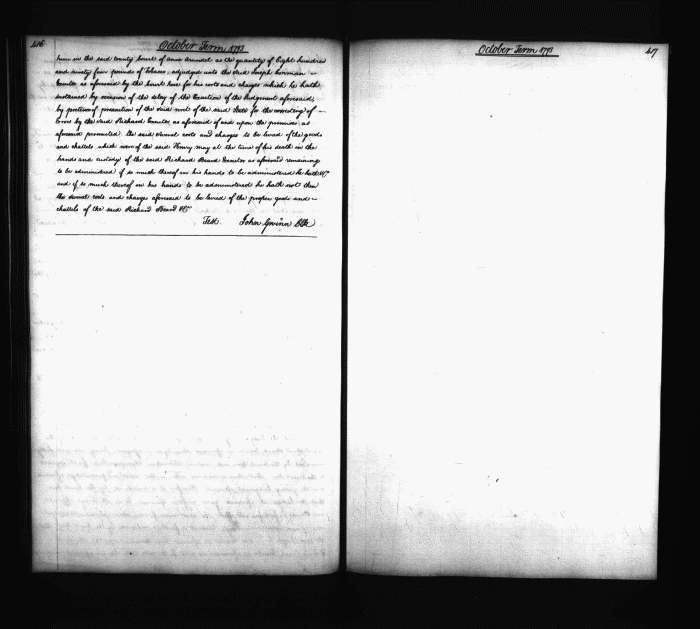 416
October Term 1793
him in the said County Court of Anne Arundel as the quantity of Eight hundred
and ninety four pounds of Tobacco adjudged unto the said Joseph
Executor as aforesaid by the Court here for his costs and charges which he hath
sustained by occasion of the delay of the Execution of the Judgment aforesaid,
by pretence of prosecution of the said writ of the said State for the correcting of
Errors by the said Richard Executor as aforesaid of and upon the premises as
aforesaid prosecuted the said several costs and charges to be levied of the goods
and chattels which were of the said Henry may at the time of his death in the
hands and custody of the said Richard Beard Executor as aforesaid remaining
to be administered if so much thereof in his hands to be administered he hath &c
and if so much thereof in his hands to be administered he hath not then
the several costs and charges aforesaid to be levied of the proper goods and
chattels of the said Richard Beard &c
Test. John Gwinn Clk
October Term 1793
417